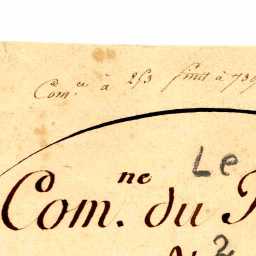 Com.ce à 253 finit à 739
Le
Com.ne du
2